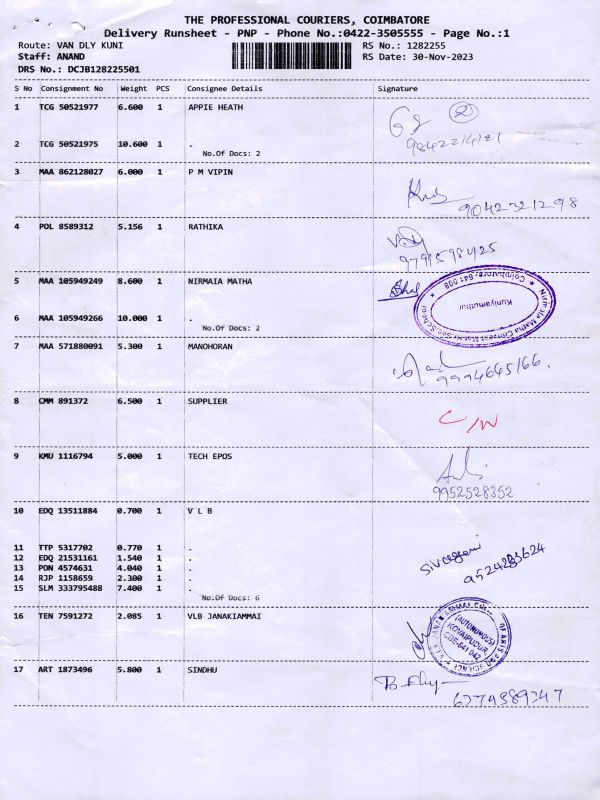 THE PROFESSIONAL COURIERS, COIMBATORE
Delivery Runsheet - PNP - Phone No.:0422-3505555 - Page No.:1
Route: VAN DLY KUNI RS No.: 1282255
Staff: ANAND RS Date: 30-Nov-2023
DRS No.: DCJB128225501
S No Consignment No Weight PCS Consignee Details Signature
1 TCG 50521977 6.600 1 APPIE HEATH
2 TCG 50521975 10.600 1 .
9842214121
No.Of Docs: 2
3 MAA 862128027 6.000 1 P M VIPIN
9042321298
4 POL 8589312 5.156 1 RATHIKA
9791598425
5 MAA 105949249 8.600 1 NIRMAIA MATHA
Coimbatore-641 008
Kuniyamuthur
Nirmala Matha Convent Mat.Hr.Sec.School
6 MAA 105949266 10.000 1 .
No.Of Docs: 2
7 MAA 571880091 5.300 1 MANOHORAN
9994645166.
8 CMM 891372 6.500 1 SUPPLIER
C/W
9 KMU 1116794 5.000 1 TECH EPOS
9952528352
10 EDQ 13511884 0.700 1 V L B
11 TTP 5317702 0.770 1 .
12 EDQ 21531161 1.540 1 .
13 PON 4574631 4.040 1 .
14 RJP 1158659 2.300 1 .
15 SLM 333795488 7.400 1 .
No.Of Docs: 6
16 TEN 7591272 2.085 1 VLB JANAKIAMMAI
(AUTONOMOUS)
KOVAIPUDUR
CBE-641 042
17 ART 1873496 5.800 1 SINDHU